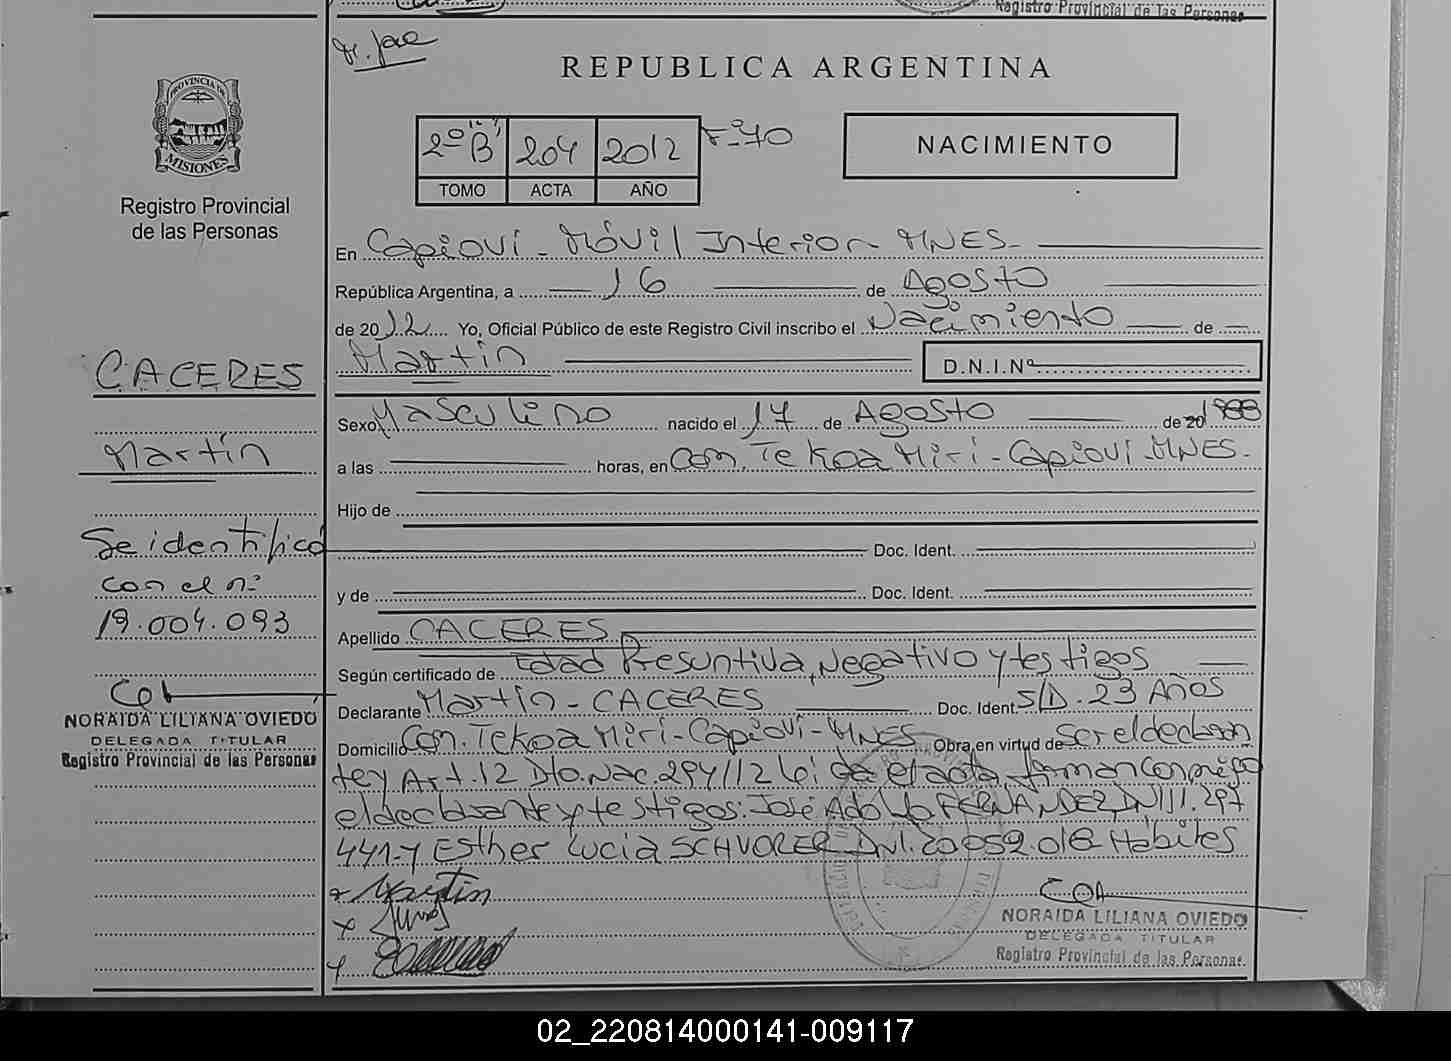 Registro Provincial de las Personas
REPUBLICA ARGENTINA
PROVINCIA DE
MISIONES
Registro Provincial
de las Personas
2º "B" 204 2012 Fº 70
TOMO ACTA AÑO
NACIMIENTO
En Capioví - Móvil Interior - MNES -
República Argentina, a 16 de Agosto
de 2012 Yo, Oficial Público de este Registro Civil inscribo el Nacimiento de
Martín D.N.I.Nº
CACERES
Martín
Se identificó
con el nº
19.004.093
NORAIDA LILIANA OVIEDO
DELEGADA TITULAR
Registro Provincial de las Personas
Sexo Masculino nacido el 17 de Agosto de 20 1988
a las horas, en Com. Tekoa Miri - Capioví - MNES -
Hijo de
Doc. Ident.
y de Doc. Ident.
Apellido CACERES
Según certificado de Edad Presuntiva, Negativo y testigos
Declarante Martín - CACERES Doc. Ident. S/D. 23 Años
Domicilio Com. Tekoa Miri - Capioví - MNES Obra en virtud de Ser el declaran
te y Art. 12 Dto. Nac. 294/12 leida el acta firman conmigo
el declarante y testigos: José Adolfo FERNANDEZ DNI 11.297
441 - y Esther Lucia SCHVORER DNI. 20.059.018 Hábiles
Martin
NORAIDA LILIANA OVIEDO
DELEGADA TITULAR
Registro Provincial de las Personas
02_220814000141-009117